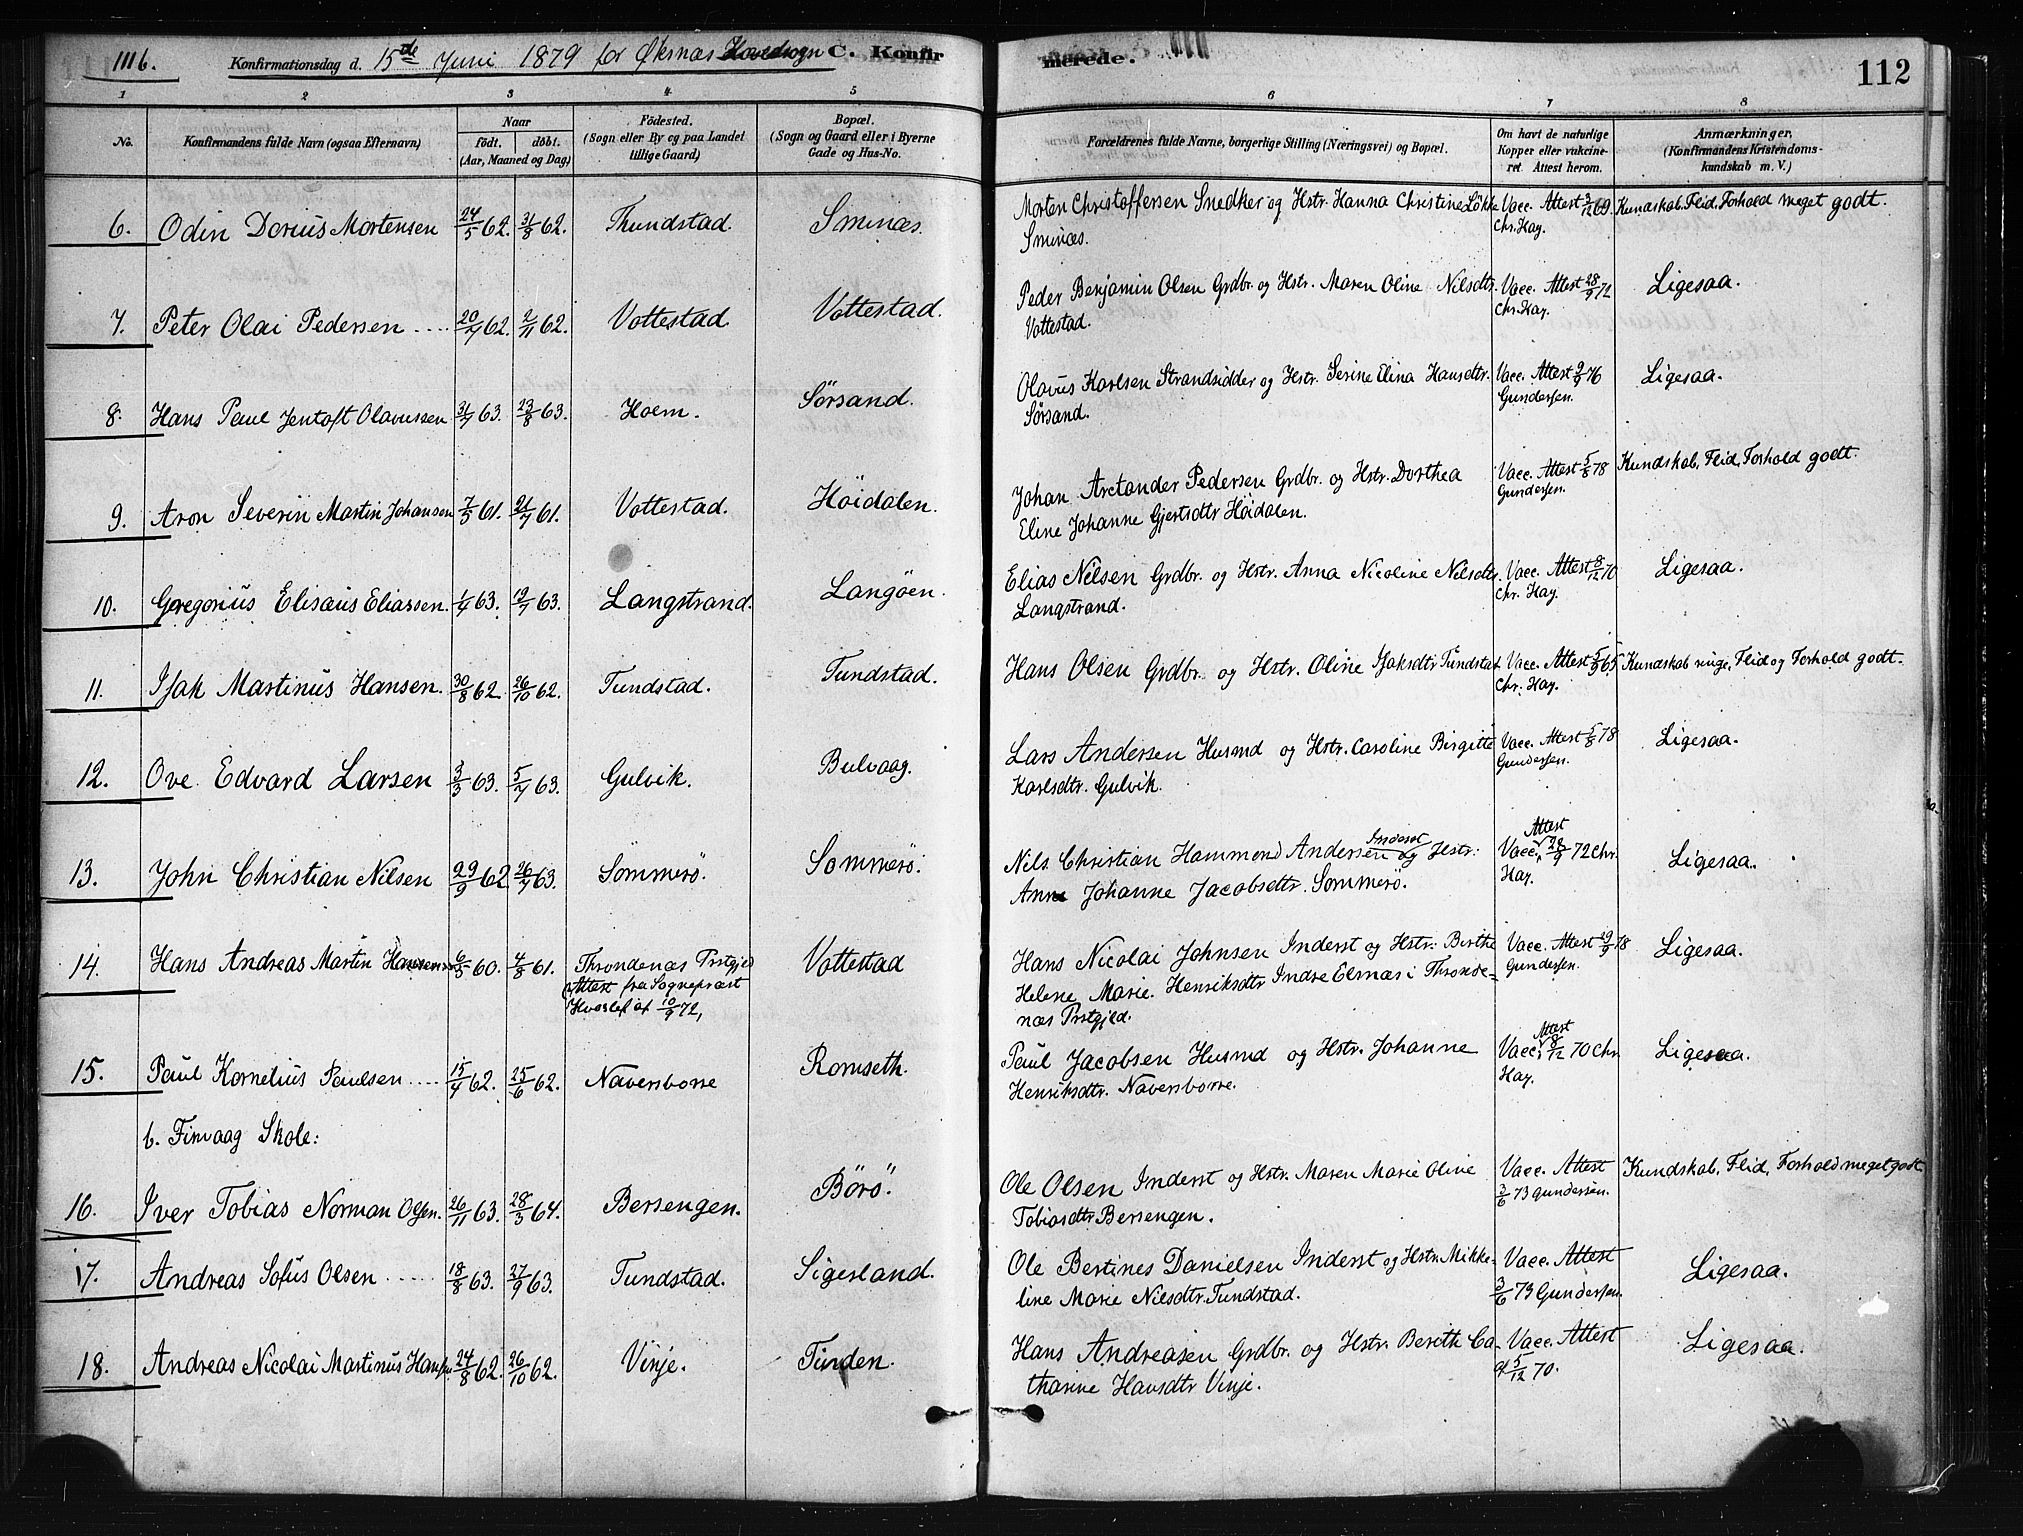 111b. Konfirmationsdag d. 15de Juni 1879 for Øksnæs Hovedsogn C. Konfirmerede. 112
1 2 3 4 5 6 7 8
No.
Konfirmandens fulde Navn (ogsaa Efternavn)
Naar
født. døbt.
(Aar, Maaned og Dag)
Födested.
(Sogn eller By og paa Landet
tillige Gaard)
Bopæl.
(Sogn og Gaard eller i Byerne
Gade og Hus-No.
Forældrenes fulde Navne, borgerlige Stilling (Næringsvei) og Bopæl.
Om havt de naturlige
Kopper eller vakcine-
ret. Attest herom.
Anmærkninger.
(Konfirmandens Kristendoms-
kundskab m. V.)
6. Odin Dorius Mortensen 24/5 62. 31/8 62. Thundstad. Sminæs. Morten Christoffersen Snedker og Hstr. Hanna Christine Løkke Vacc. Attest 3/12 69. Kundskab, Flid, Forhold meget godt.
Sminæs. Chr. Hay.
7. Peter Olai Pedersen .... 20/7 62. 2/11 62. Vottestad. Vottestad. Peder Benjamin Olsen Grdbr. og Hstr. Maren Oline Nilsdtr. Vacc. Attest 28/9 72 Ligesaa.
Vottestad. Chr. Hay.
8. Hans Paul Jentoft Olaussen 31/7 63. 23/8 63. Hoem. Sørsand. Olavus Karlsen Strandsidder og Hstr. Serine Elina Hansdtr. Vacc. Attest 9/9 76 Ligesaa.
Sørsand. Gundersen.
9. Aron Severin Martin Johansen 7/5 61. 21/7 61. Vottestad. Höidalen. Johan Arctander Pedersen Grdbr. og Hstr. Dorthea Vacc. Attest 5/8 78 Kundskab, Flid, Forhold godt.
Eline Johanne Gjertsdtr Höidalen. Gundersen.
10. Gregorius Elisæus Eliassen. 1/4 63. 19/7 63. Langstrand. Langöen. Elias Nilsen Grdbr. og Hstr. Anna Nicoline Nilsdtr. Vacc. Attest 8/12 70 Ligesaa.
Langstrand. Chr. Hay.
11. Isak Martinus Hansen. 30/8 62. 26/10 62. Tundstad. Tundstad. Hans Olsen Grdbr. og Hstr. Oline Isaksdtr Tundstad Vacc. Attest 5/9 65 Kundskab ringe, Flid og Forhold godt.
Chr. Hay.
12. Ove Edvard Larsen 3/3 63. 5/7 63. Gulvik. Bulvaag. Lars Andersen Husmd og Hstr. Caroline Birgitte Vacc. Attest 5/8 78 Ligesaa.
Karlsdtr. Gulvik. Gundersen.
13. John Christian Nilsen 29/9 62 26/7 63. Sömmerö. Sommerö. Nils Christian Hammond Andersen Inderst og Hstr: Vacc. Attest 28/9 72 Chr. Ligesaa.
Anne Johanne Jacobsdtr. Sommerö. Hay.
14. Hans Andreas Martin Hansen 6/5 60. 4/8 61. Throndenæs Prstgjeld Vottestad Hans Nicolai Johnsen Inderst og Hstr: Berthe Vacc. Attest 29/9 78 Ligesaa.
(Attest fra Sogneprest Helene Marie Henriksdtr Indre Elsnæs i Thronde- Gundersen.
Hvoslef af 10/9 72, næs Prstgjeld.
15. Paul Kornelius Paulsen .... 15/4 62. 25/6 62. Naversborre Romseth. Paul Jacobsen Husmd og Hstr. Johanne Vacc. Attest 8/12 70 Chr. Ligesaa.
Henriksdtr. Naversborre. Hay.
b. Finvaag Skole:
16. Iver Tobias Norman Olsen. 26/11 63. 28/3 64. Bersengen. Börö. Ole Olsen Inderst og Hstr. Maren Marie Oline Vacc. Attest Kundskab, Flid, Forhold meget godt
Tobiasdtr Bersengen. 3/6 73 Gundersen.
17. Andreas Sofus Olsen ..... 18/8 63. 27/9 63. Tundstad. Sigerland. Ole Bertines Danielsen Inderst og Hstr. Mikke- Vacc. Attest Ligesaa.
line Marie Nilsdtr. Tundstad. 3/6 73 Gundersen.
18. Andreas Nicolai Martinus Hansen 24/8 62. 26/10 62. Vinje. Tinden. Hans Andreasen Grdbr. og Hstr. Bereth Ca- Vacc. Attest Ligesaa.
tharine Hansdtr Vinje. af 5/12 70.